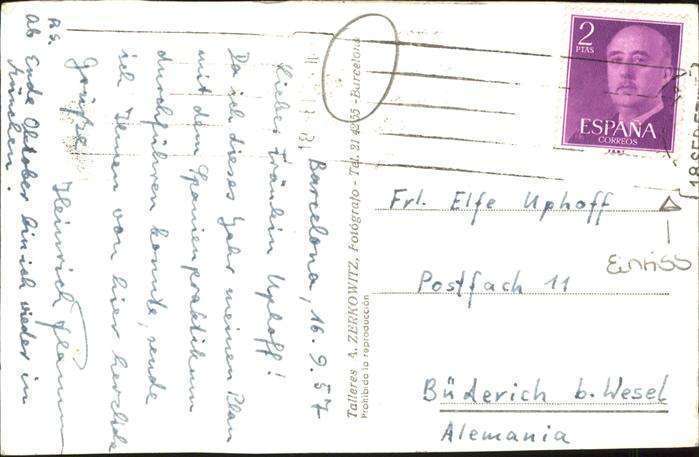 Barcelona, 16.9.57
Liebes Fräulein Uphoff!
Da ich dieses Jahr meinen Plan
mit dem Spanienpraktikum
durchführen konnte, sende
ich Ihnen von hier herzliche
Grüße Heinrich
P.S.
Ab Ende Oktober bin ich wieder in
München.
Talleres A. ZERKOWITZ, Fotógrafo - Tel. 21 42 55 - Barcelona
Prohibida la reproducción
2
PTAS
ESPAÑA
CORREOS
Frl. Elfe Uphoff
Einriss
Postfach 11
Büderich b. Wesel
Alemania